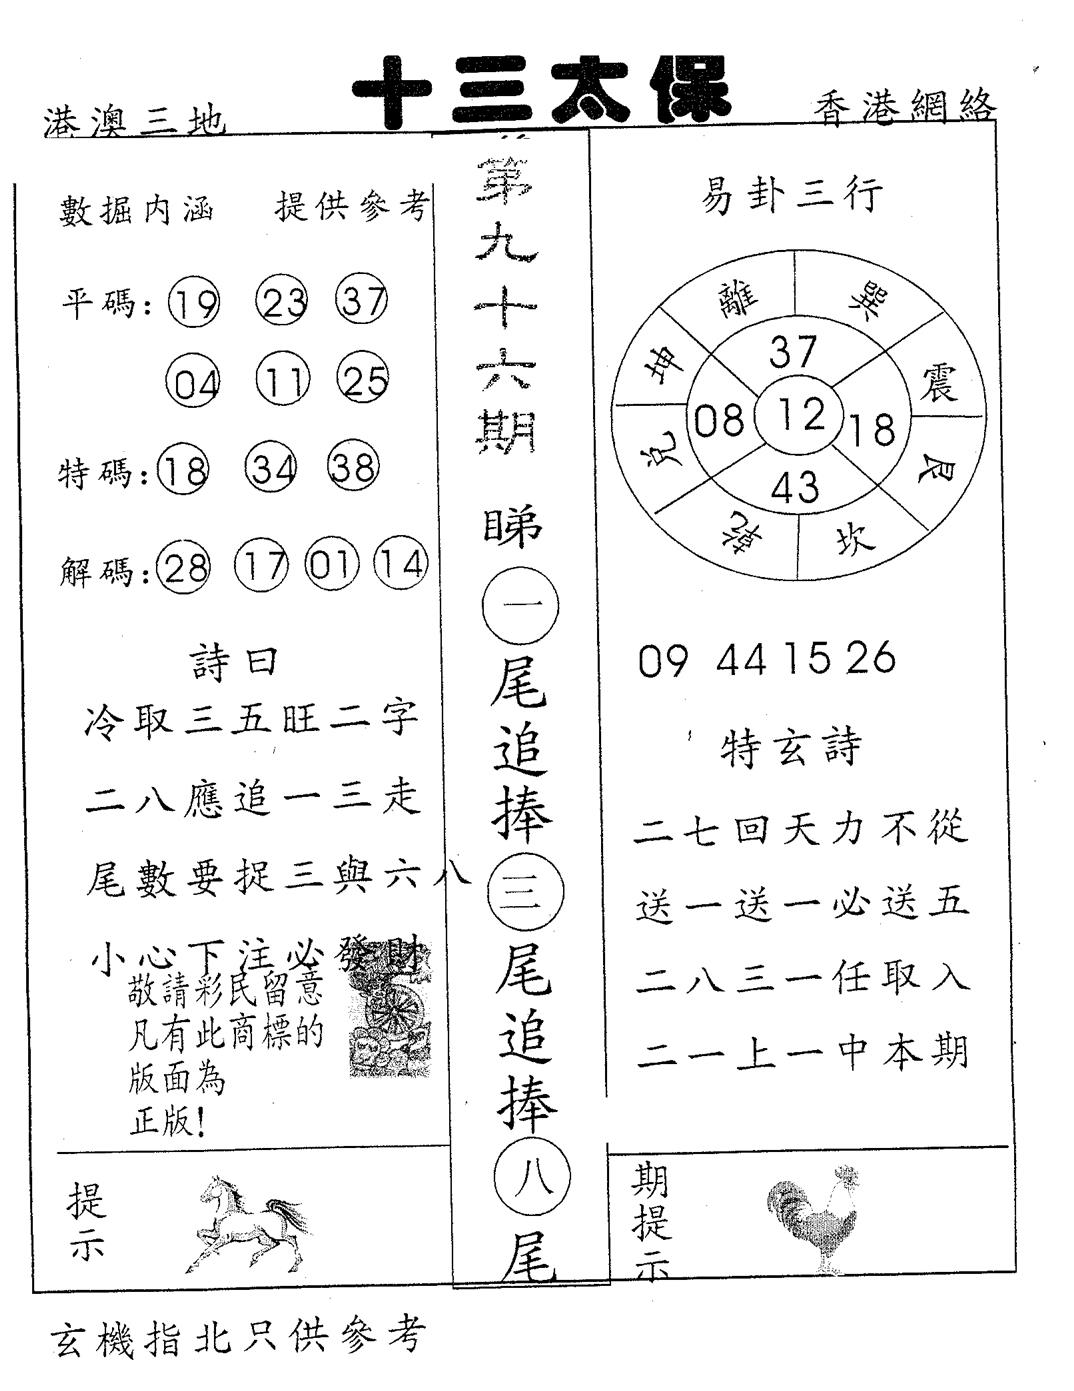 十三太保
港澳三地
香港網絡
數据内涵 提供參考
平碼: 19 23 37
04 11 25
特碼: 18 34 38
解碼: 28 17 01 14
詩曰
冷取三五旺二字
二八應追一三走
尾數要捉三與六八
小心下注必發財
敬請彩民留意
凡有此商標的
版面為
正版!
提示
第九十六期
睇一尾追捧三尾追捧八尾
易卦三行
離 巽
坤 震
兌 艮
乾 坎
37
08 12 18
43
09 44 15 26
特玄詩
二七回天力不從
送一送一必送五
二八三一任取入
二一上一中本期
期提示
玄機指北只供參考